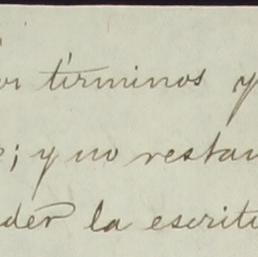 términos y
; y no restan
der la escrit